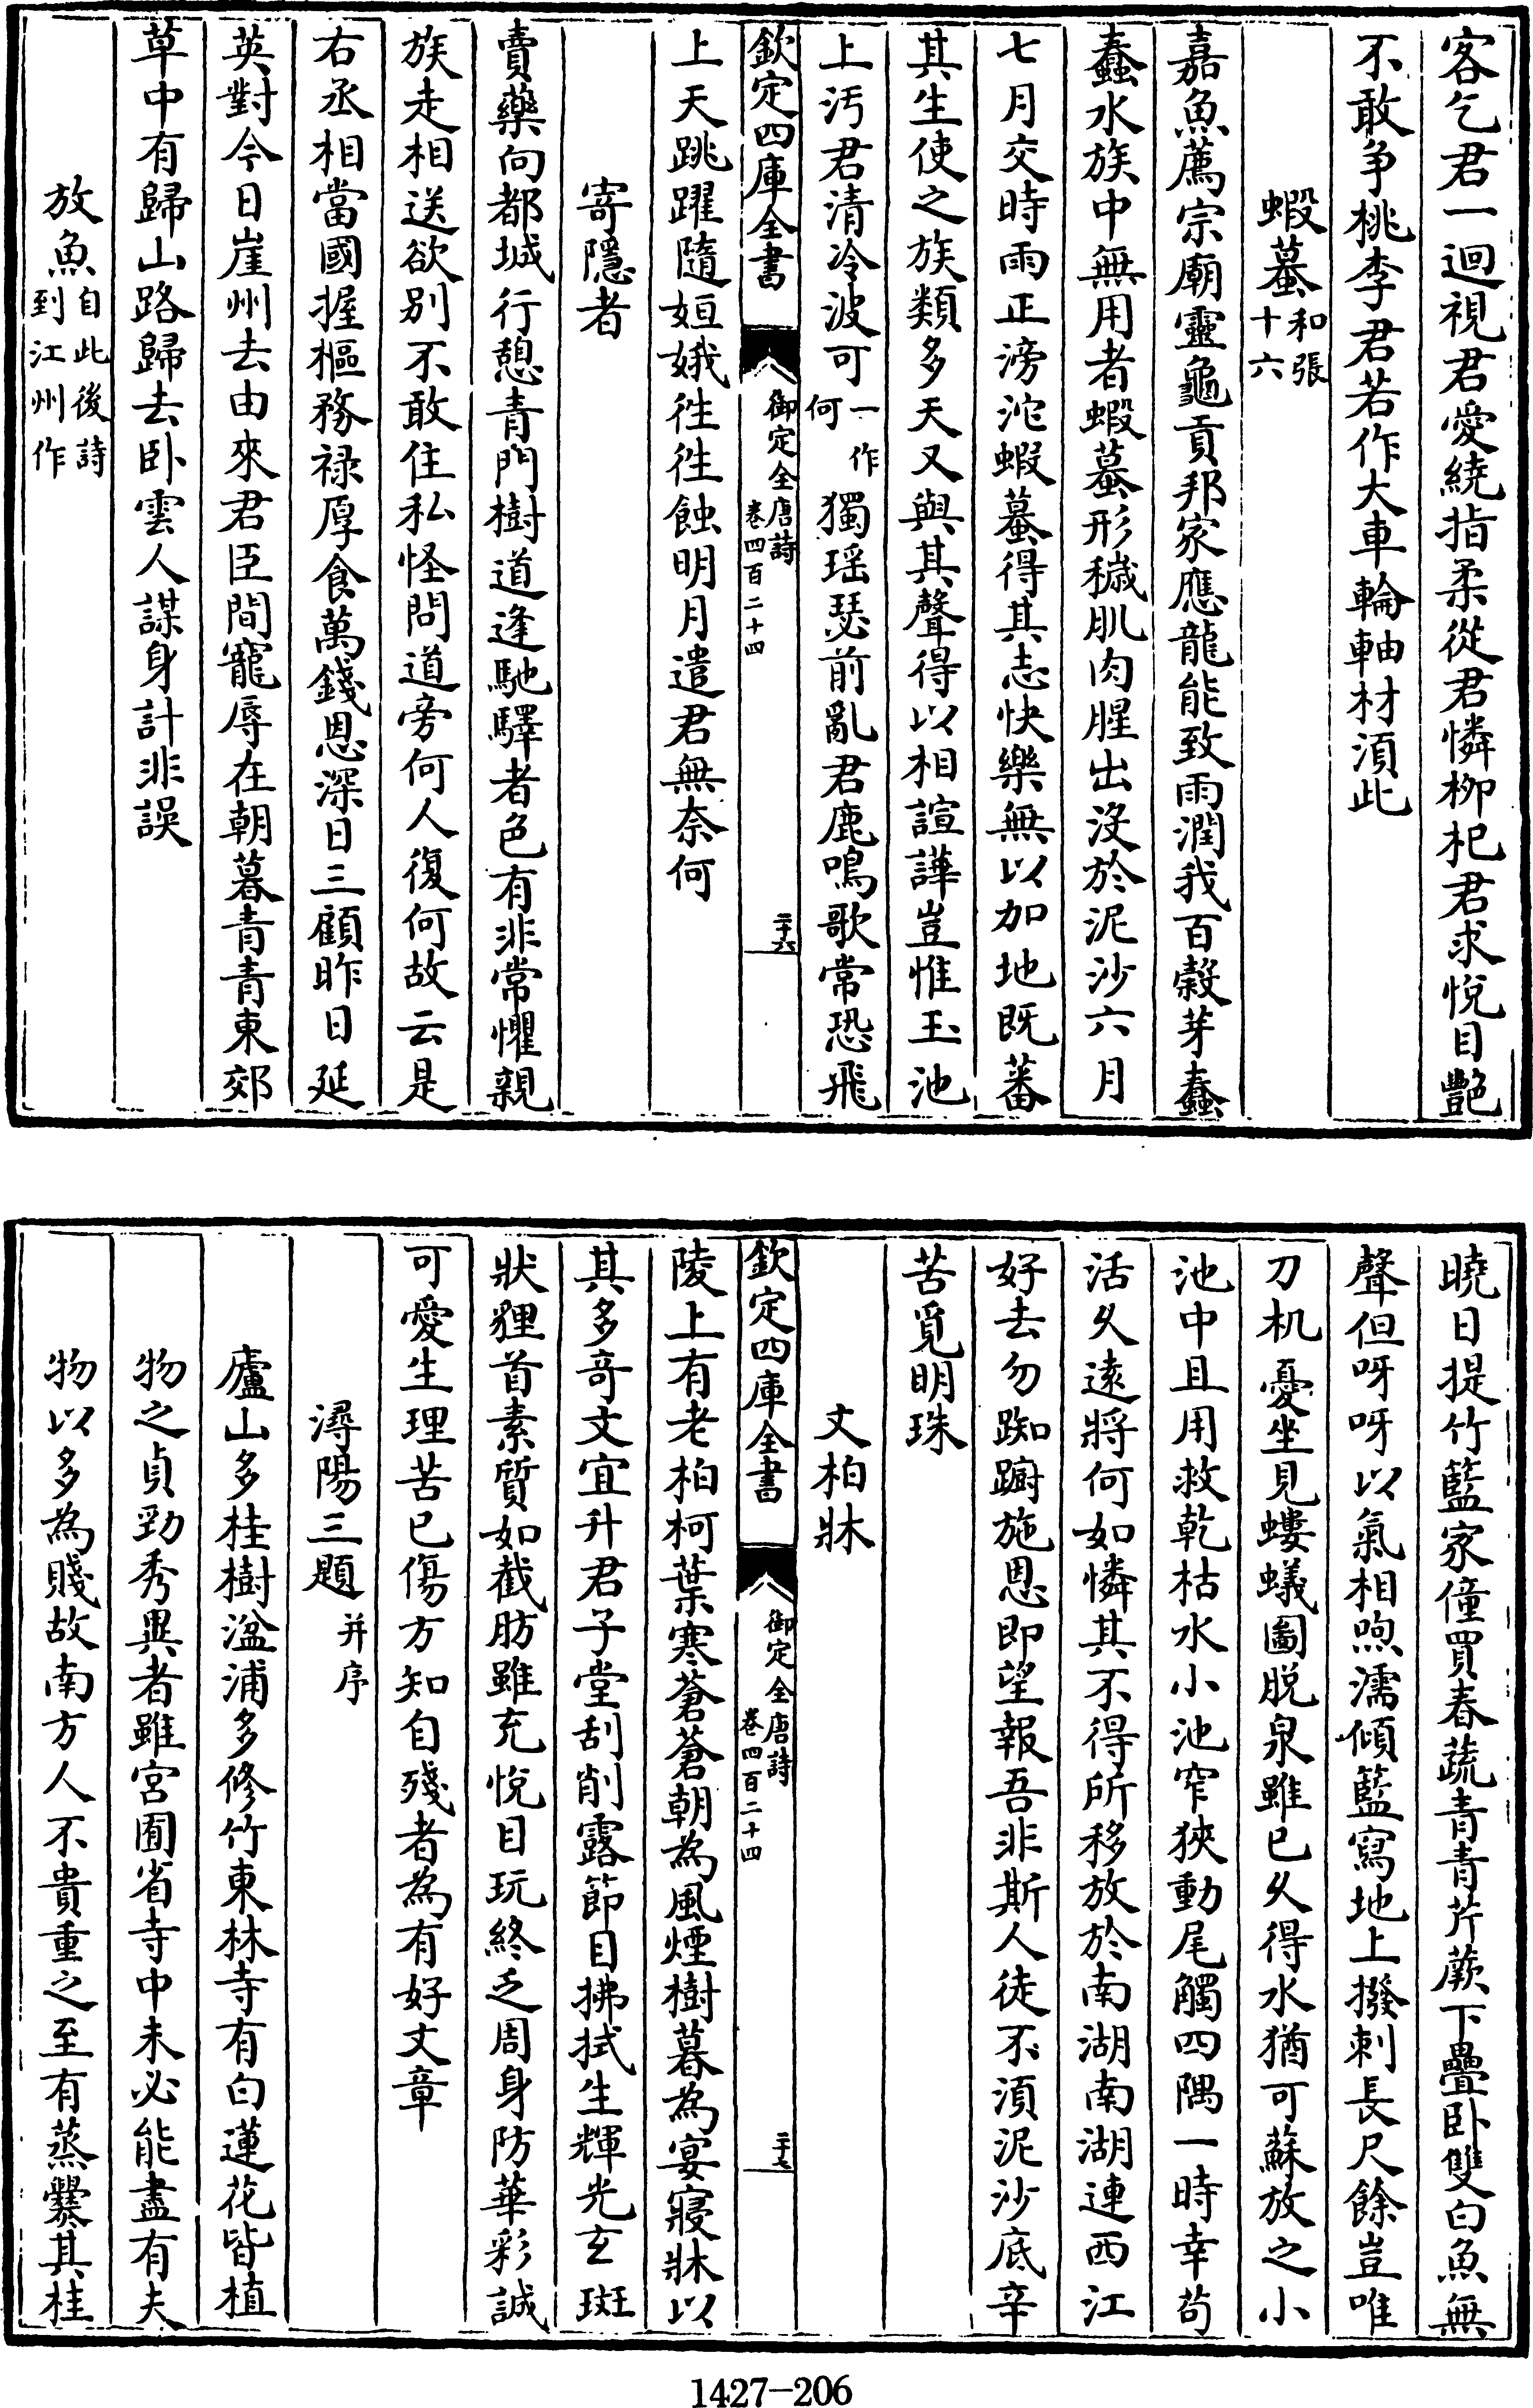 客乞君一迴視君愛繞指柔從君憐柳杞君求悅目艷
不敢争桃李君若作大車輪軸材須此
蝦蟇和張十六
嘉魚薦宗廟靈龜貢邦家應龍能致雨潤我百穀芽蠢
蠢水族中無用者蝦蟇形穢肌肉腥出没於泥沙六月
七月交時雨正滂沱蝦蟇得其志快樂無以加地既蕃
其生使之族類多天又與其聲得以相諠譁豈惟玉池
上汚君清冷波可一作何獨瑶瑟前亂君鹿鳴歌常恐飛
欽定四庫全書
御定全唐詩
卷四百二十四
二十六
上天跳躍隨姮娥徃徃蝕明月遣君無奈何
寄隱者
賣藥向都城行憩青門樹道逢馳驛者色有非常懼親
族走相送欲别不敢住私怪問道旁何人復何故云是
右丞相當國握樞務禄厚食萬錢恩深日三顧昨日延
英對今日崖州去由來君臣間寵辱在朝暮青青東郊
草中有歸山路歸去卧雲人謀身計非誤
放魚自此後詩到江州作
曉日提竹籃家僮買春蔬青青芹蕨下疊卧雙白魚無
聲但呀呀以氣相喣濡傾籃寫地上撥刺長尺餘豈唯
刀机憂坐見螻蟻圖脱泉雖已乆得水猶可蘇放之小
池中且用救乾枯水小池窄狹動尾觸四隅一時幸苟
活乆逺將何如憐其不得所移放於南湖南湖連西江
好去勿踟蹰施恩即望報吾非斯人徒不須泥沙底辛
苦覓明珠
文柏牀
欽定四庫全書
御定全唐詩
卷四百二十四
二十七
陵上有老柏柯葉寒蒼蒼朝為風煙樹暮為宴寢牀以
其多竒文宜升君子堂刮削露節目拂拭生輝光玄斑
狀狸首素質如截肪雖充悅目玩終乏周身防華彩誠
可愛生理苦已傷方知自殘者為有好文章
潯陽三題并序
廬山多桂樹湓浦多修竹東林寺有白蓮花皆植
物之貞勁秀異者雖宫囿省寺中未必能盡有夫
物以多為賤故南方人不貴重之至有蒸爨其桂
1427-206